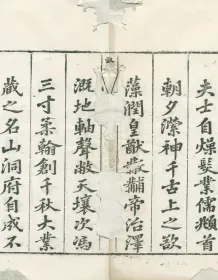 夫士自燥髮業儒頫首
朝夕濴神千古上之欲
藻潤皇猷黼黻帝治澤
溉地軸聲敝天壤次馮
三寸柔翰創千秋大業
藏之名山洞府自成不